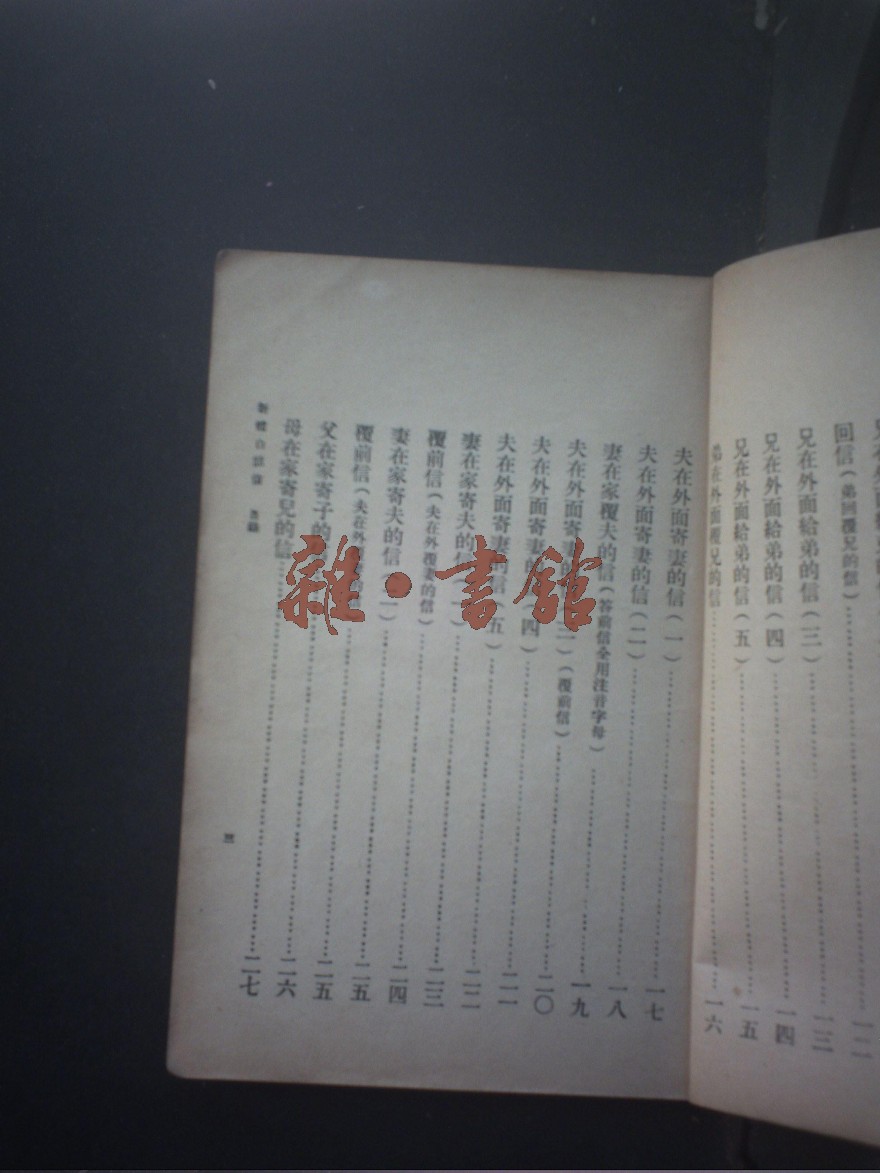 回信（弟回覆兄的信）一二
兄在外面給弟的信（三）一三
兄在外面給弟的信（四）一四
兄在外面給弟的信（五）一五
弟在外面覆兄的信 一六
夫在外面寄妻的信（一）一七
夫在外面寄妻的信（二）一八
妻在家覆夫的信（答前信全用注音字母）一九
夫在外面寄妻的（三）（覆前信）二〇
夫在外面寄妻的（四）二一
夫在外面寄妻的信（五）二二
妻在家寄夫的信 二三
覆前信（夫在外覆妻的信）二四
妻在家寄夫的信（二）二五
覆前信（夫在外 二五
父在家寄子的 二六
母在家寄兒的信 二七
新體白話信 目錄
三
雜·書館